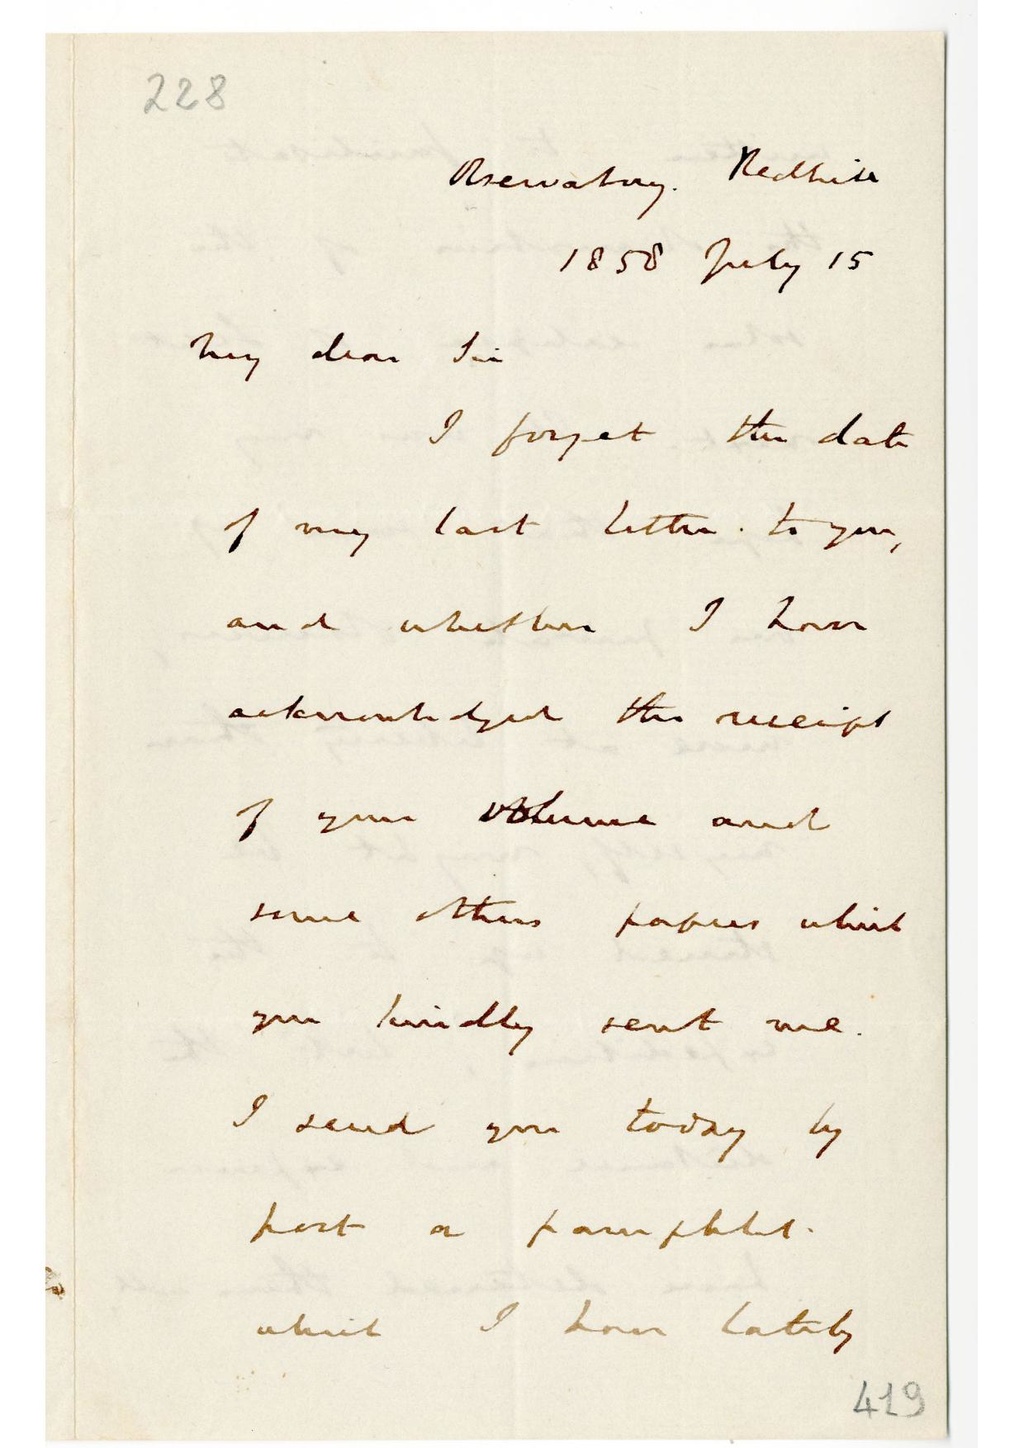 228
Observatory. Redhill
1858 July 15
My dear Sir
I forget the date
of my last letter to you,
and whether I have
acknowledged the receipt
of your volume and
some others papers which
you kindly sent me.
I send you today by
post a pamphlet.
which I have lately
419